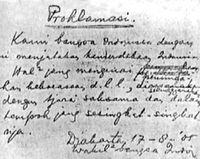 Proklamasi.
Kami bangsa Indonesia dengan
ini menjatakan kemerdekaan Indonesia.
Hal² jang mengenai
kekoeasaan, d.l.l.,
dengan tjara saksama dan dalam
tempoh jang sesingkat-singkat
nja.
Djakarta, 17-8-'05
Wakil bangsa